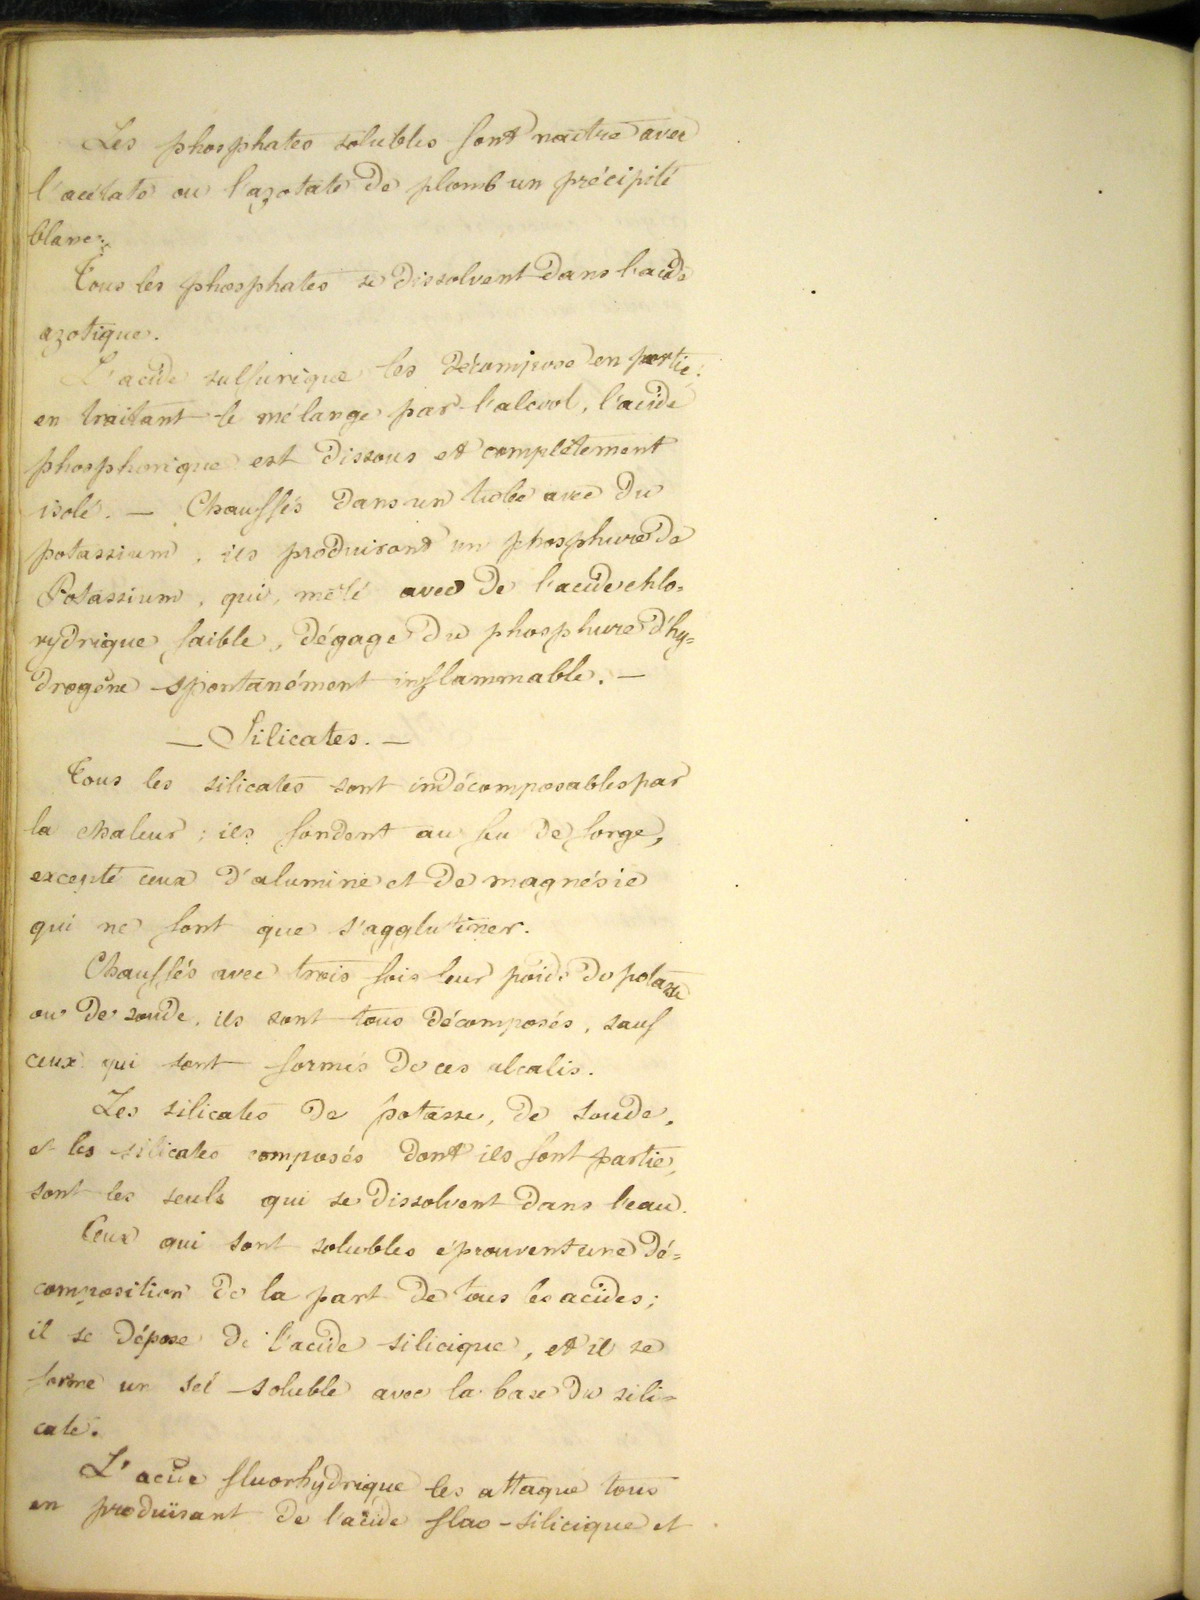 Les phosphates solubles font naître avec
l'acétate ou l'azotate de plomb un précipité
blanc.
Tous les phosphates se dissolvent dans l'acide
azotique.
L'acide sulfurique les décompose en partie:
en traitant le mélange par l'alcool, l'acide
phosphorique est dissous et complètement
isolé. — Chauffés dans un tube avec du
potassium, ils produisent un phosphure de
Potassium, qui, mêlé avec de l'acide chlo=
rydrique faible, dégage du phosphure d'hy=
drogène spontanément inflammable. —
— Silicates. —
Tous les silicates sont indécomposables par
la chaleur; ils fondent au feu de forge,
excepté ceux d'alumine et de magnésie
qui ne font que s'agglutiner.
Chauffés avec trois fois leur poids de potasse
ou de soude, ils sont tous décomposés, sauf
ceux qui sont formés de ces alcalis.
Les silicates de potasse, de soude,
et les silicates composés dont ils font partie,
sont les seuls qui se dissolvent dans l'eau.
Ceux qui sont solubles éprouvent une dé=
composition de la part de tous les acides;
il se dépose de l'acide silicique, et il se
forme un sel soluble avec la base du sili=
cate.
L'acide fluorhydrique les attaque tous
en produisant de l'acide fluo-silicique et